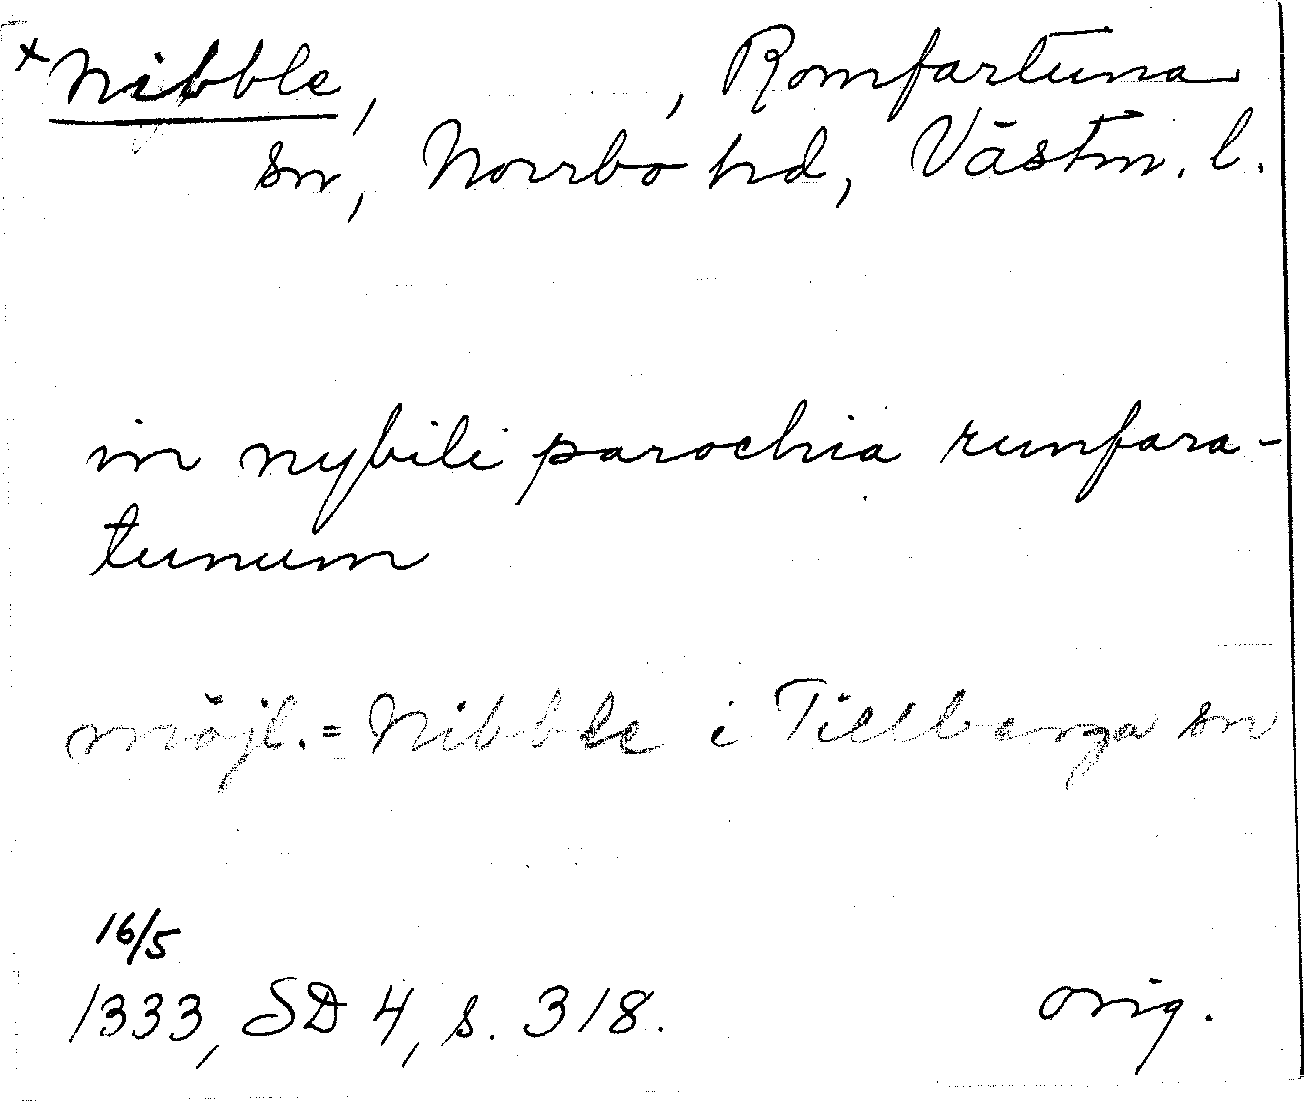 + Nibble, , Romfartuna
sn, Norrbo hd, Västm. l.
in nybili parochia runfara-
tunum
möjl. = Nibble i Tillberga sn
16/5
1333, SD 4, s. 318. orig.